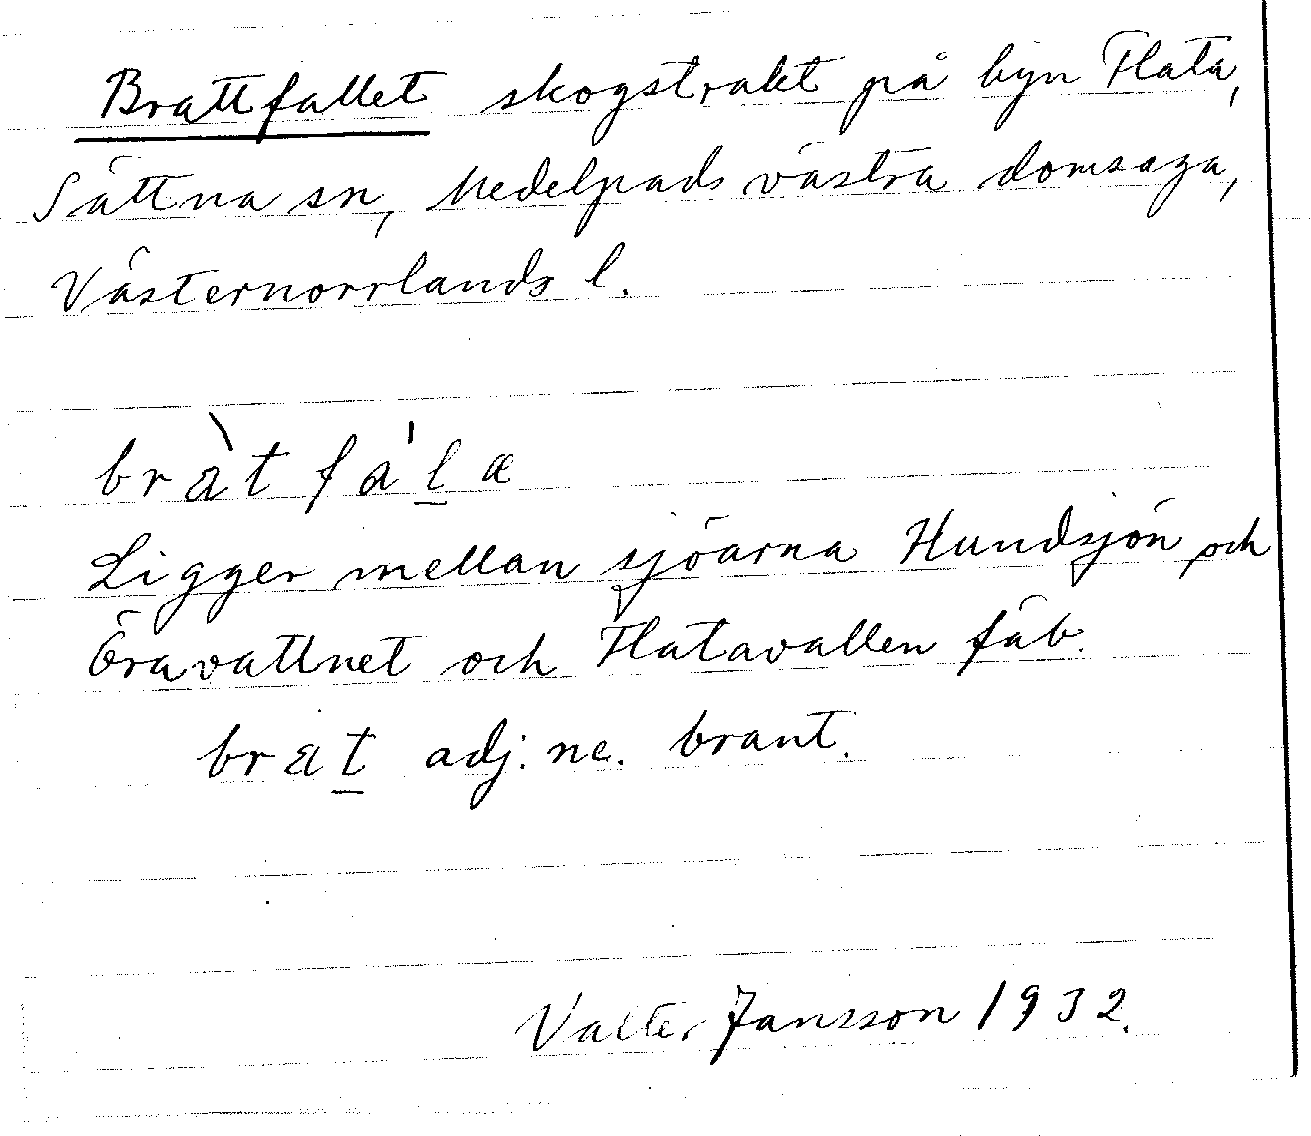 Brattfallet skogstrakt på byn Flata,
Sättna sn, Medelpads västra domsaga,
Västernorrlands l.
bràt fa'l̲æ
Ligger mellan sjöarna Hundsjön och
Öravattnet och Flatavallen fäb.
brat̲ adj. ne. brant.
Valter Jansson 1932.